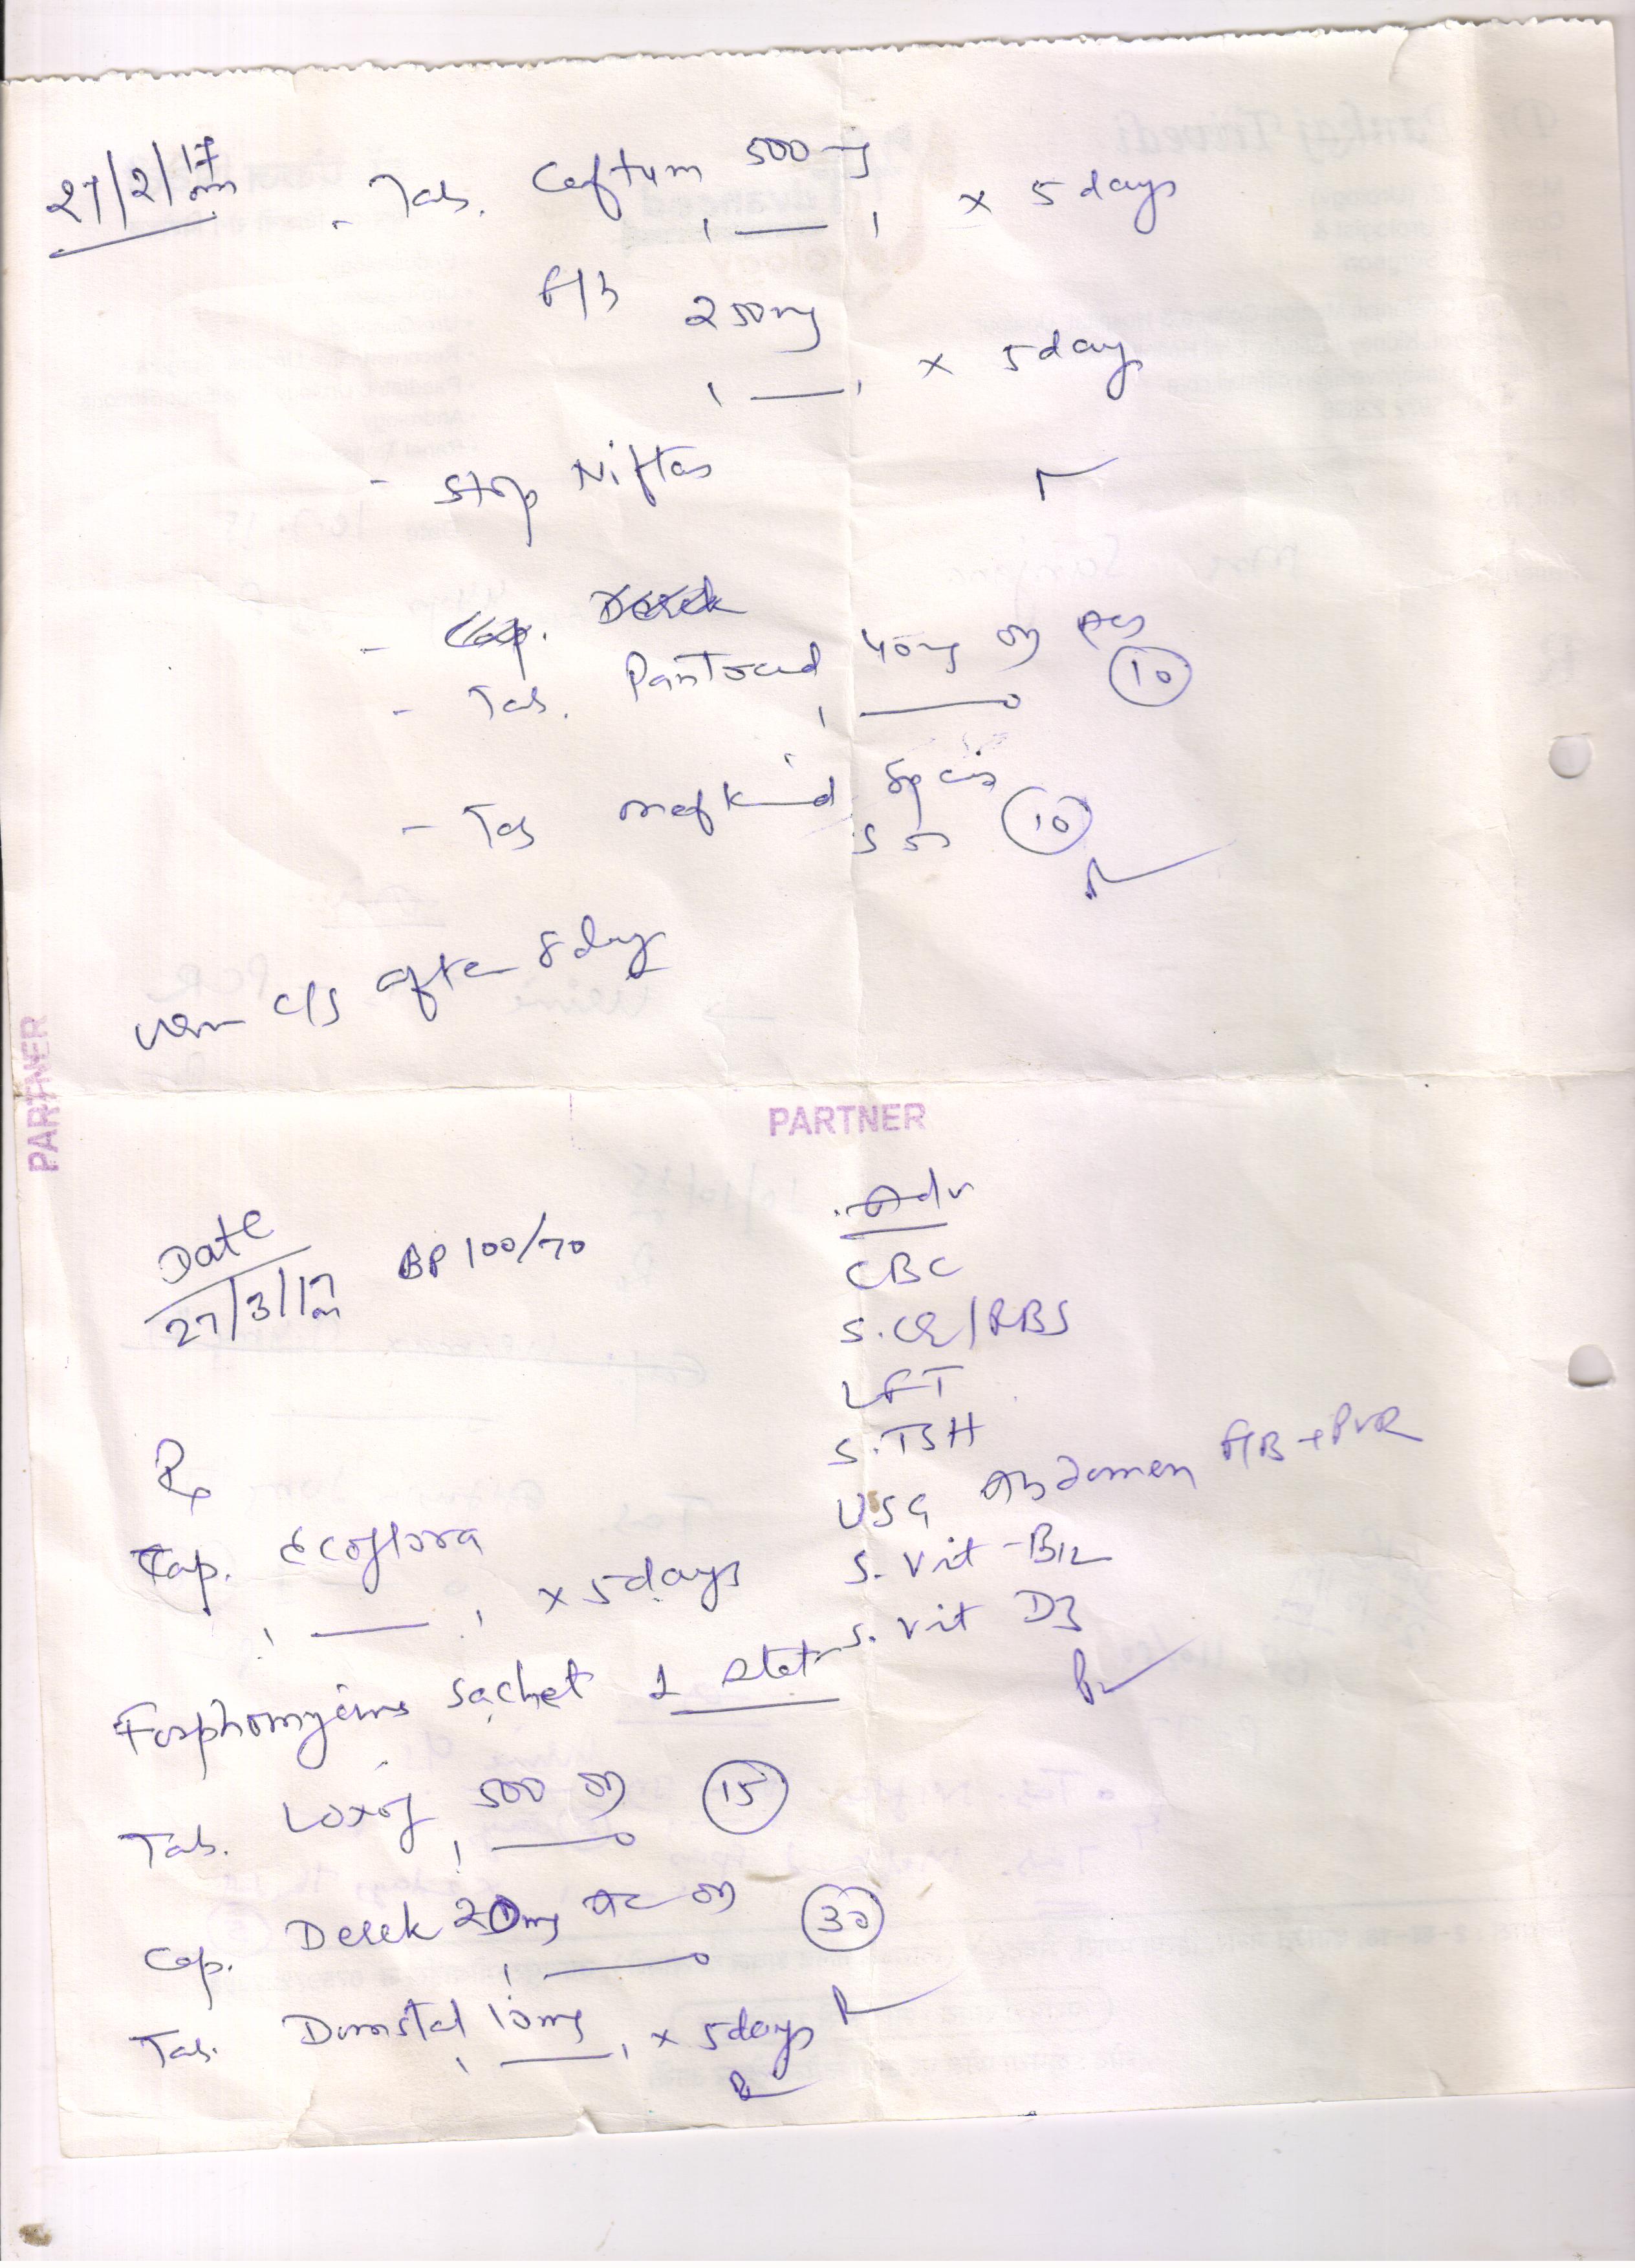 27/2/17
- Tab. Ceftum 500 mg
1 — 1 x 5 days
F/B 250mg
1 — 1 x 5 days
- Stop Niftas
- Cap. Derek
- Tab. Pantocid 40mg OD
1 — 0 10
- Tab Mefkind Spas
SOS 10
Urine C/S after 8 day
PARTNER
PARTNER
Date
27/3/17
BP 100/70
Adv
CBC
S.CR/RBS
LFT
S.TSH
USG Abdomen + PVR
S. Vit - B12
S. Vit D3
Rx
Cap. Ecoflora
1 — 1 x 5 days
Fosphomycins Sachet 1 stat
Tab. Loxof 500 OD 15
1 — 0
Cap. Derek 20mg AC OD 30
1 — 0
Tab. Domstal 10mg
1 — 1 x 5 days